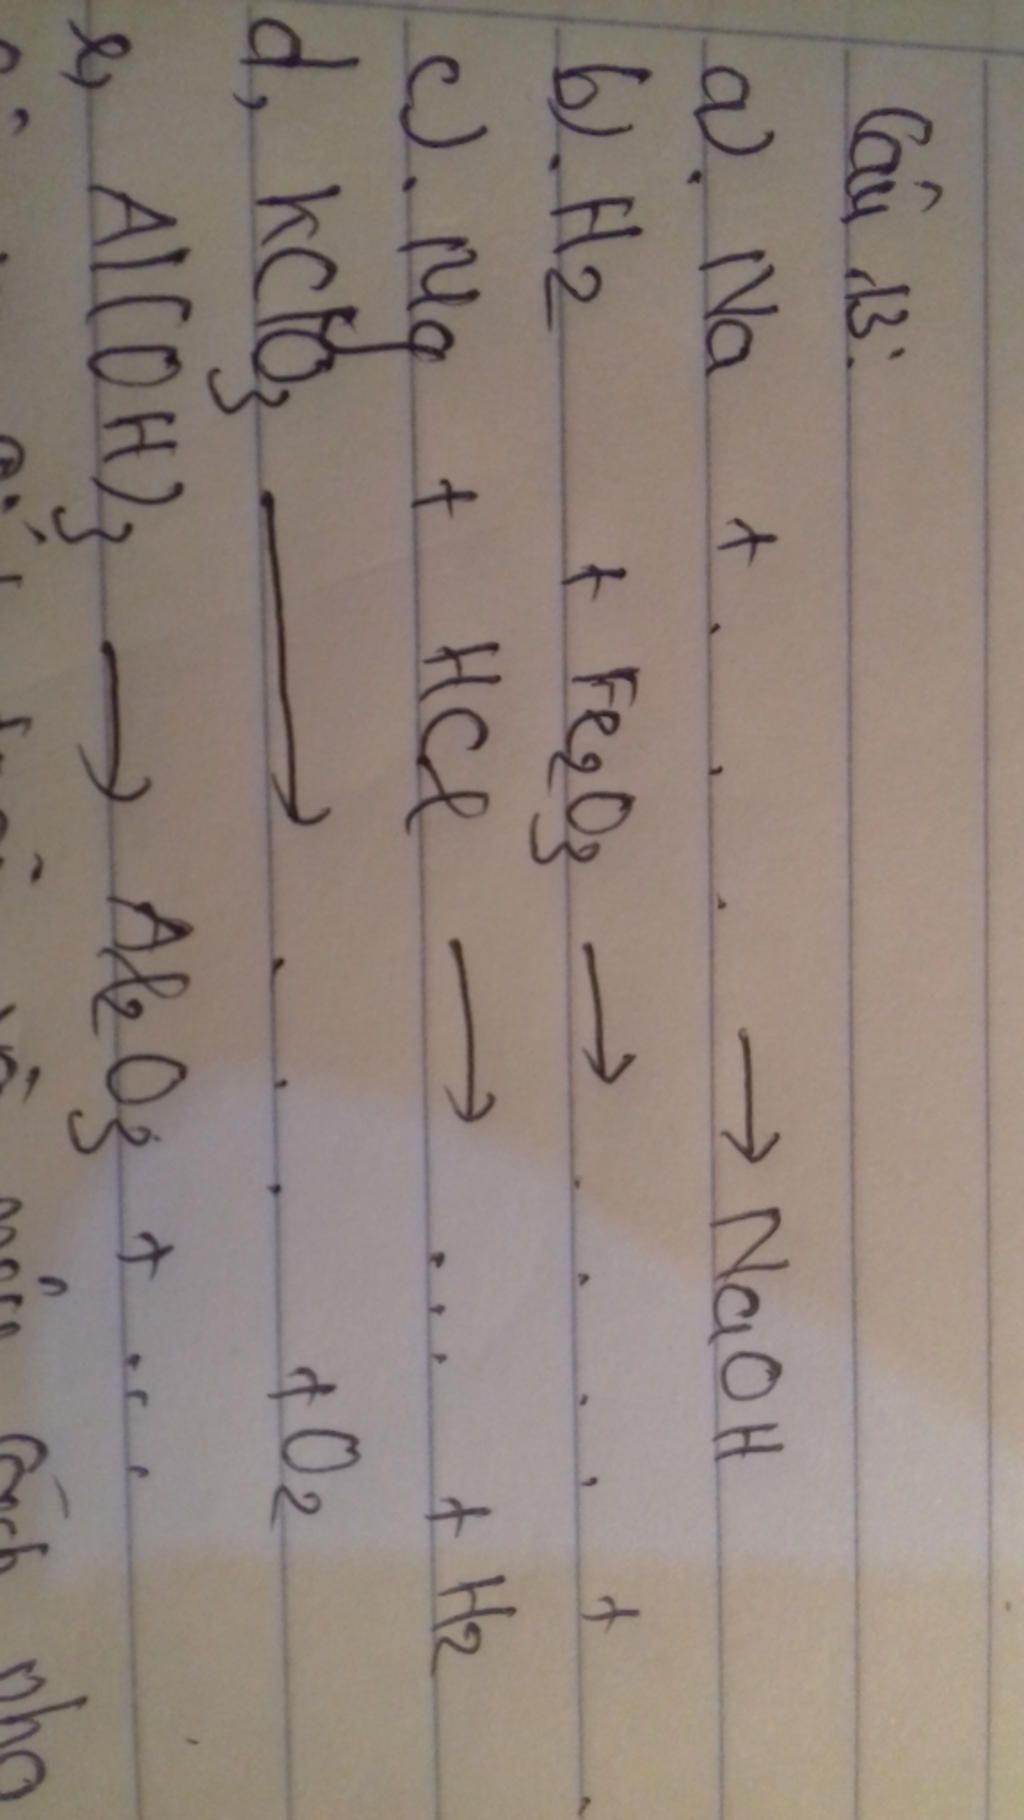 Câu 13:
a). Na + . . . → NaOH
b). H2 + Fe2O3 → . . . . +
c). Mg + HCl → . . . + H2
d, KClO3 → . . . + O2
e, Al(OH)3 → Al2O3 + . . .